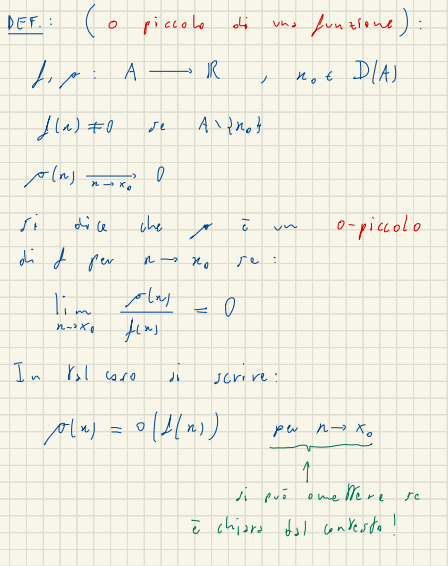 DEF.: (o piccolo di una funzione):
f, ρ : A ⟶ ℝ , x₀ ∈ D(A)
f(x) ≠ 0 se A \ {x₀}
ρ(x) ⟶ 0
x→x₀
si dice che ρ è un o-piccolo
di f per x → x₀ se:
lim ρ(x)/f(x) = 0
x→x₀
In tal caso si scrive:
ρ(x) = o(f(x)) per x → x₀
↑
si può omettere se
è chiaro dal contesto!